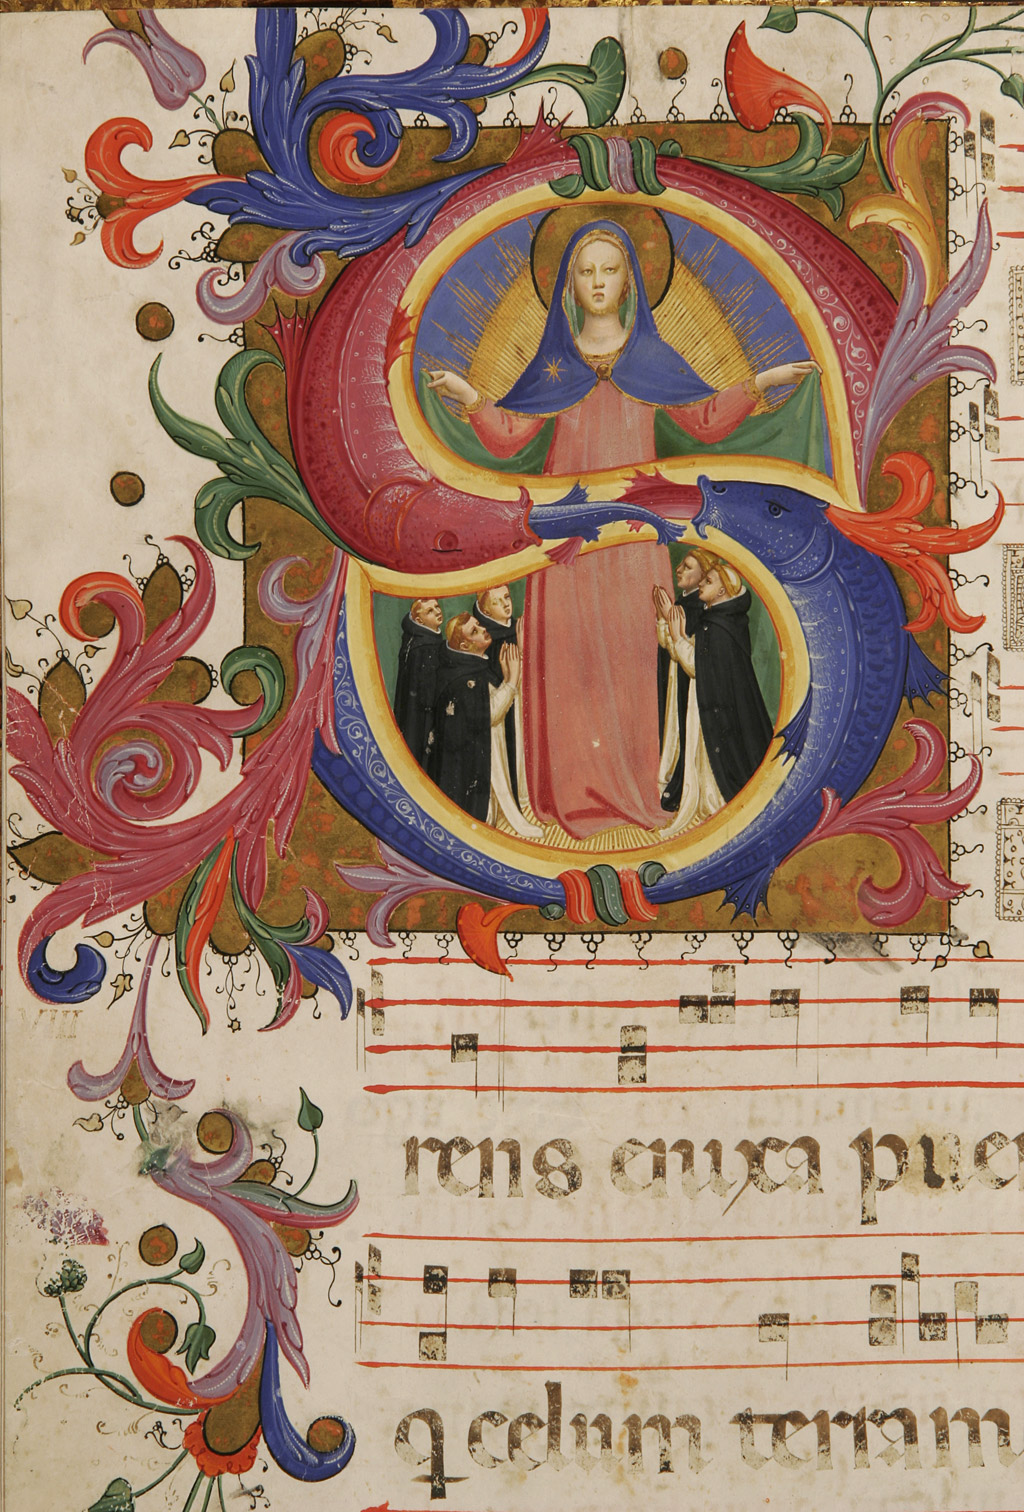 S
VIII
rens enixa puer
q celum terram